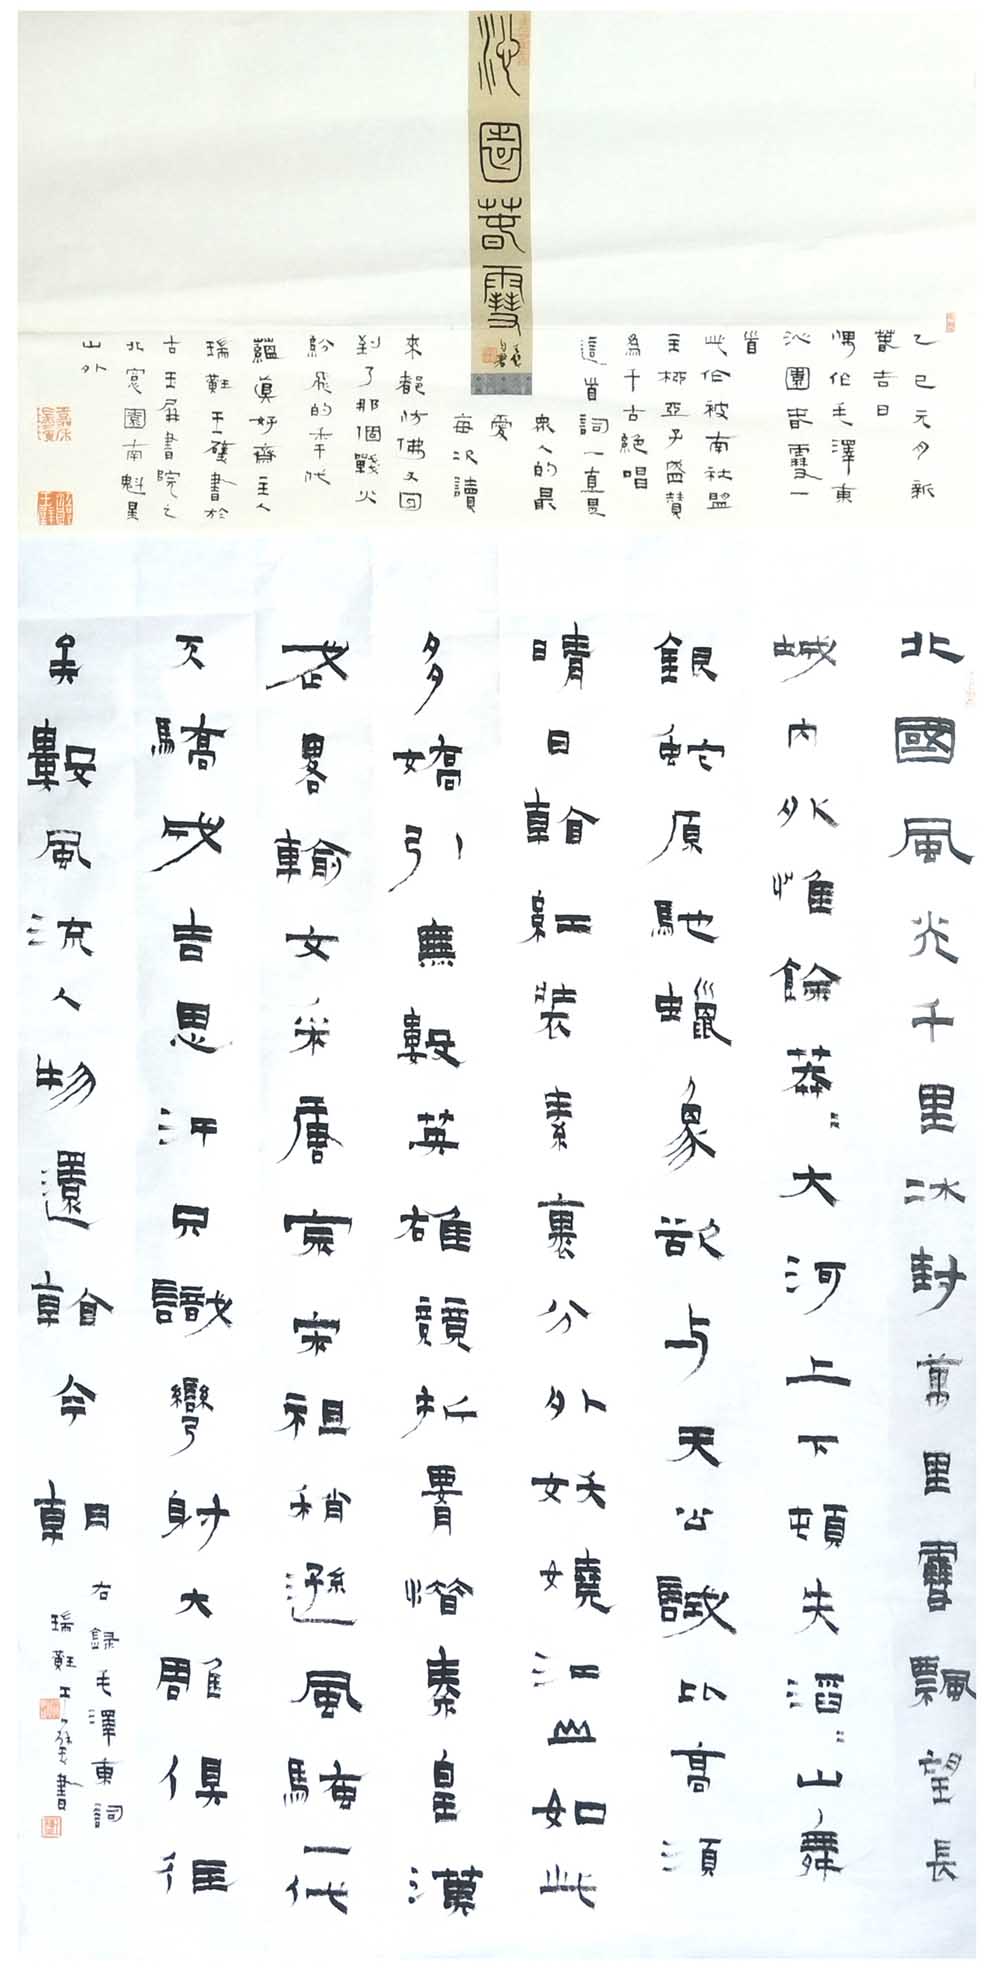 沁園春雪
乙巳元夕新
春吉日
偶作毛澤東
沁園春雪一
首
此作被南社盟
主柳亞子盛贊
為千古絕唱
這首詞一直是
眾人的最
愛
每次讀
來都仿佛又回
到了那個戰火
紛飛的年代
蘊真好齋主人
瑞莊王一礕書於
古玉屏書院之
北窗園南魁星
山外
北國風光千里冰封萬里雪飄望長
城內外惟餘莽〻大河上下頓失滔〻山舞
銀蛇原馳蠟象欲与天公試比高須
晴日看紅裝素裹分外妖嬈江山如此
多嬌引無數英雄競折腰惜秦皇漢
武略輸文采唐宗宋祖稍遜風騷一代
天驕成吉思汗只識彎弓射大雕俱往
矣數風流人物還看今朝
右錄毛澤東詞
瑞莊王一礕書